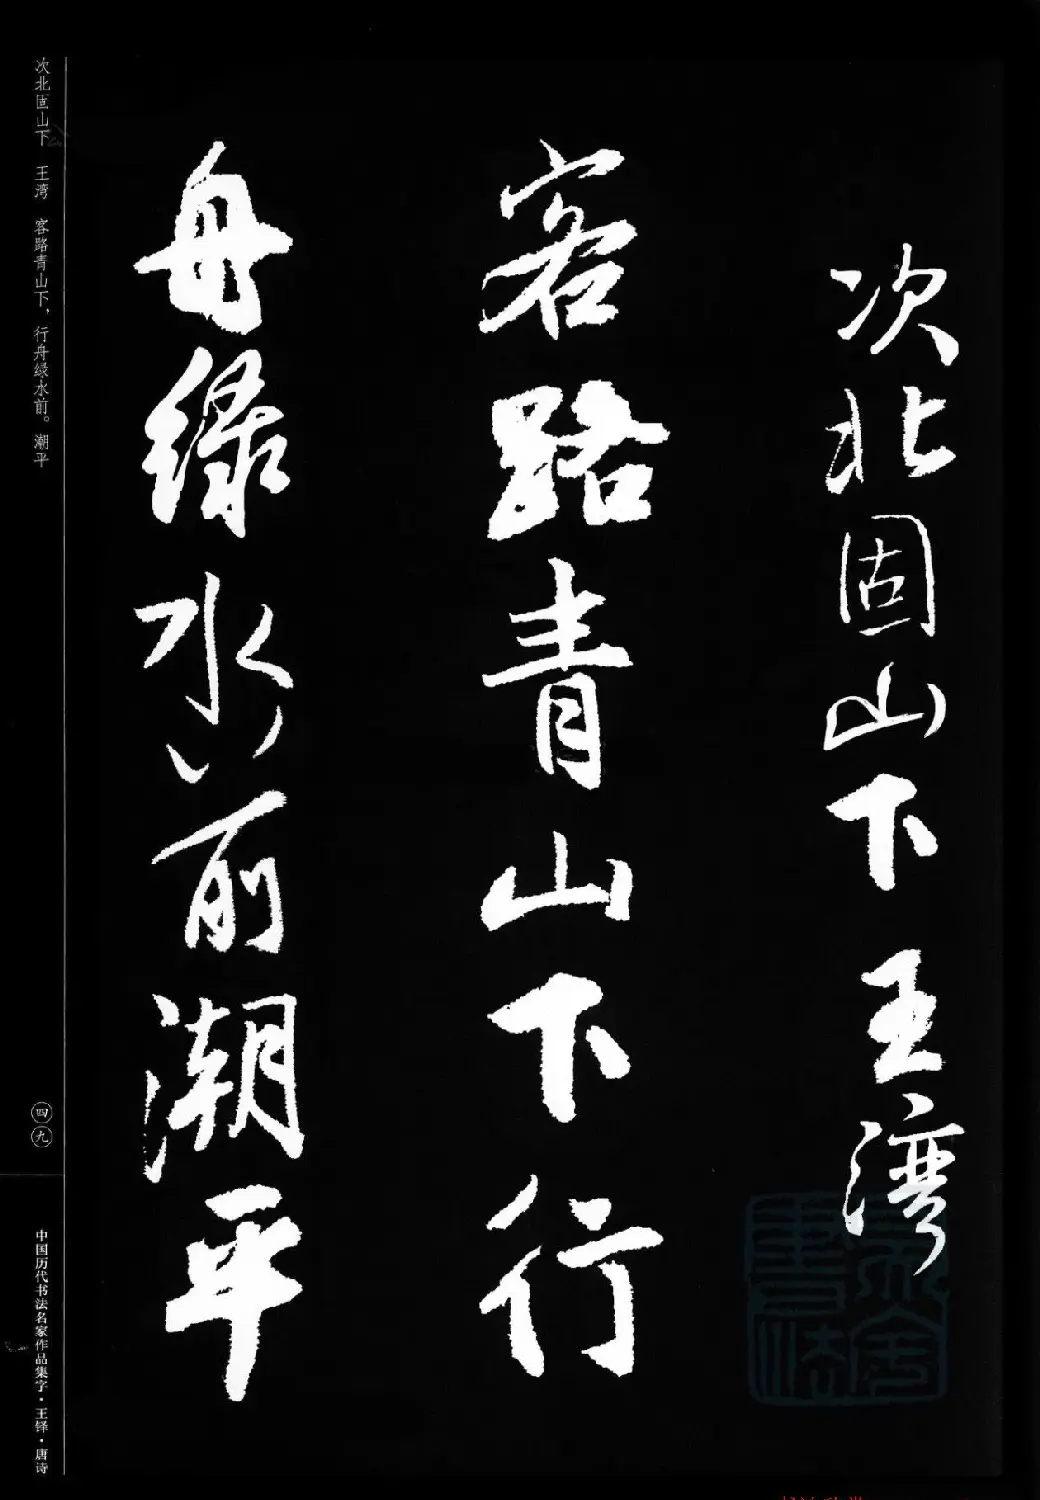 次北固山下王湾
客路青山下行
舟绿水前潮平
次北固山下 王湾 客路青山下，行舟绿水前。潮平
四九
中国历代书法名家作品集字·王铎·唐诗